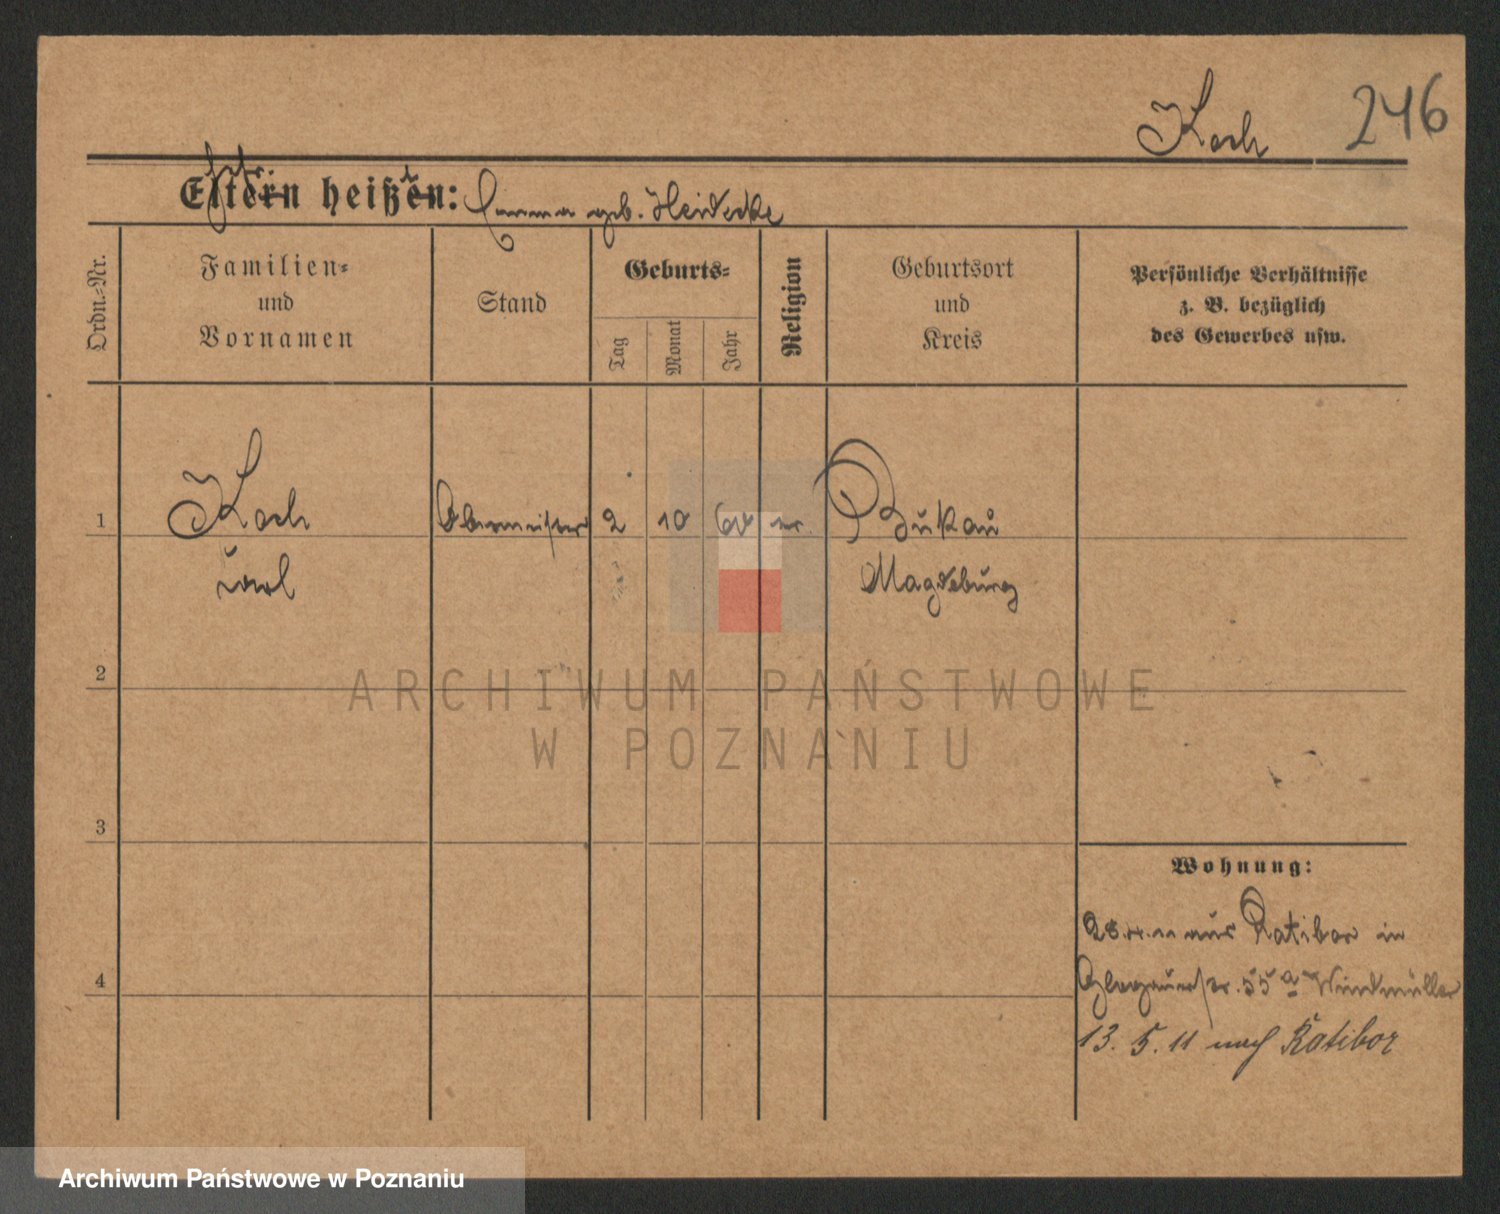 Koch 246
Eltern heißen: Emma geb. Heidecke
Ordn.-Nr.
Familien-
und
Vornamen
Stand
Geburts-
Tag
Monat
Jahr
Religion
Geburtsort
und
Kreis
Persönliche Verhältnisse
z. B. bezüglich
des Gewerbes usw.
1 Koch Obermeister 2 10 60 ev. Bukau
Magdeburg
2
3
4
Wohnung:
aus Ratibor in
Glogauerstr. 55a Windmüller
13. 5. 11 nach Ratibor
ARCHIWUM PAŃSTWOWE
W POZNANIU
Archiwum Państwowe w Poznaniu